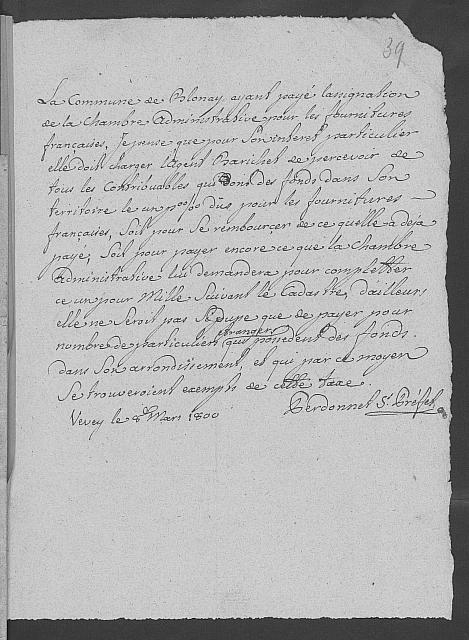 39
La Commune de Blonay ayant payé lassignation
de la Chambre Administrative pour les fournitures
françaises, Je pense que pour Son interet particulier
elle doit charger l'agent de percevoir de
tous les Contribuables qui ont des fonds dans Son
territoire le un p‰ dûs pour les fournitures —
françaises, Soit pour Se rembourcer de ce quelle a deja
payé, Soit pour payer encore ce que la Chambre
Administrative lui demandera pour completter
ce un pour Mille Suivant le Cadastre, d'ailleurs
elle ne Seroit pas Si dupe que de payer pour
nombre de particuliers etrangers qui possedent des fonds
dans Son arrondissement, et qui par ce moyen
Se trouveroient exempts de cette taxe.
Vevey le 8e Mars 1800 Perdonnet S. Préfet